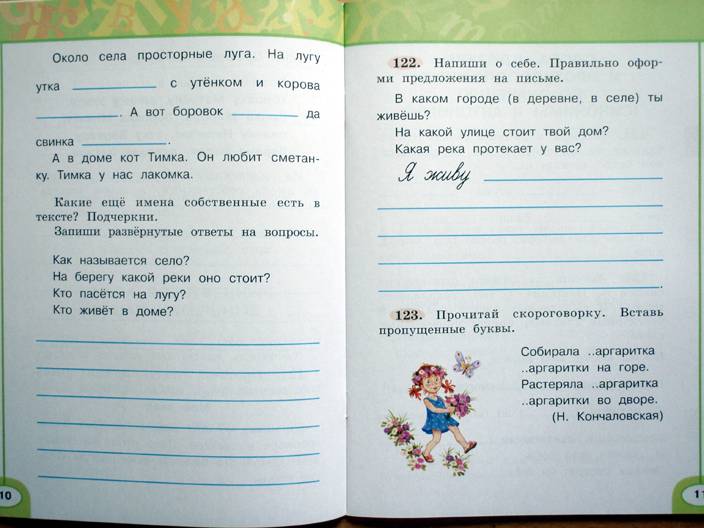 Около села просторные луга. На лугу
утка ____________ с утёнком и корова
____________. А вот боровок ____________ да
свинка ____________.
А в доме кот Тимка. Он любит сметан-
ку. Тимка у нас лакомка.
Какие ещё имена собственные есть в
тексте? Подчеркни.
Запиши развёрнутые ответы на вопросы.
Как называется село?
На берегу какой реки оно стоит?
Кто пасётся на лугу?
Кто живёт в доме?
10
122. Напиши о себе. Правильно офор-
ми предложения на письме.
В каком городе (в деревне, в селе) ты
живёшь?
На какой улице стоит твой дом?
Какая река протекает у вас?
Я живу ____________
____________.
123. Прочитай скороговорку. Вставь
пропущенные буквы.
Собирала ..аргаритка
..аргаритки на горе.
Растеряла ..аргаритка
..аргаритки во дворе.
(Н. Кончаловская)
11